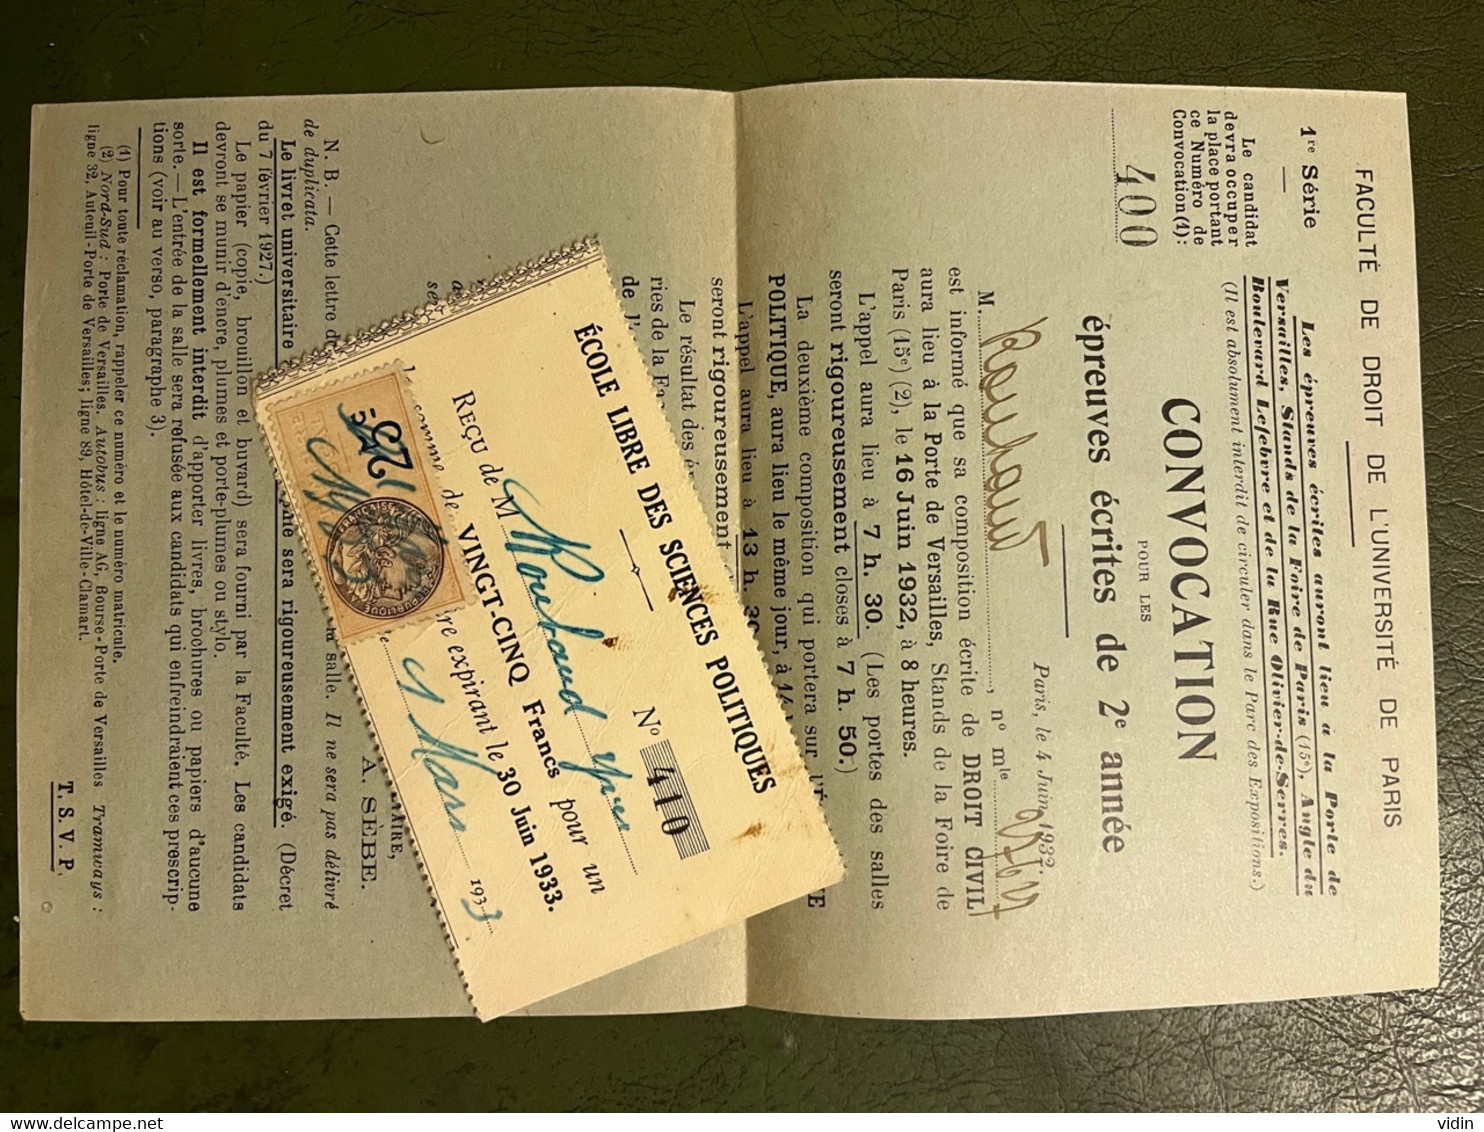 FACULTÉ DE DROIT DE L'UNIVERSITÉ DE PARIS
1re Série
Les épreuves écrites auront lieu à la Porte de
Versailles, Stands de la Foire de Paris (15e), Angle du
Boulevard Lefebvre et de la Rue Olivier-de-Serres.
(Il est absolument interdit de circuler dans le Parc des Expositions.)
Le candidat
devra occuper
la place portant
ce Numéro de
Convocation (1):
400
CONVOCATION
POUR LES
épreuves écrites de 2e année
Paris, le 4 Juin 1932.
M. Rouhaud, no mle
est informé que sa composition écrite de DROIT CIVIL
aura lieu à la Porte de Versailles, Stands de la Foire de
Paris (15e) (2), le 16 Juin 1932, à 8 heures.
L'appel aura lieu à 7 h. 30. (Les portes des salles
seront rigoureusement closes à 7 h. 50.)
La deuxième composition qui portera sur l'É
POLITIQUE, aura lieu le même jour, à 14
L'appel aura lieu à 13 h. 30
seront rigoureusement
Le résultat des ép
ries de la Fa
de l'
AIRE,
A. SÈBE.
N. B. — Cette lettre d
la salle. Il ne sera pas délivré
de duplicata.
Le livret universitaire
phié sera rigoureusement exigé. (Décret
du 7 février 1927.)
Le papier (copie, brouillon et buvard) sera fourni par la Faculté. Les candidats
devront se munir d'encre, plumes et porte-plumes ou stylo.
Il est formellement interdit d'apporter livres, brochures ou papiers d'aucune
sorte. — L'entrée de la salle sera refusée aux candidats qui enfreindraient ces prescrip-
tions (voir au verso, paragraphe 3).
(1) Pour toute réclamation, rappeler ce numéro et le numéro matricule.
(2) Nord-Sud : Porte de Versailles. Autobus : ligne AG, Bourse-Porte de Versailles Tramways :
ligne 32, Auteuil-Porte de Versailles; ligne 89, Hôtel-de-Ville-Clamart.
T. S. V. P.
ÉCOLE LIBRE DES SCIENCES POLITIQUES
No 410
REÇU de M Rouhaud Yves
somme de VINGT-CINQ Francs pour un
re expirant le 30 Juin 1933.
le 9 Mars 1933
vidin